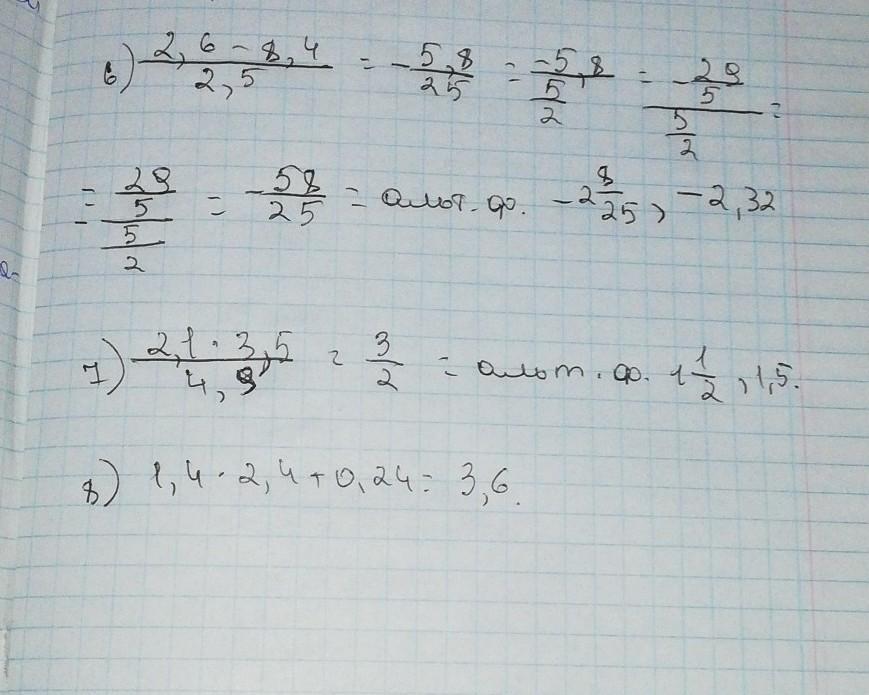 6) (2,6 - 8,4)/(2,5) = -(5,8)/(25) = (-5,8)/(5/2) = (-29/5)/(5/2) =
= -(29/5)/(5/2) = -58/25 = альт. ф. -2 8/25, -2,32
7) (2,1 · 3,5)/(4,9) = 3/2 = альт. ф. 1 1/2, 1,5.
8) 1,4 · 2,4 + 0,24 = 3,6.